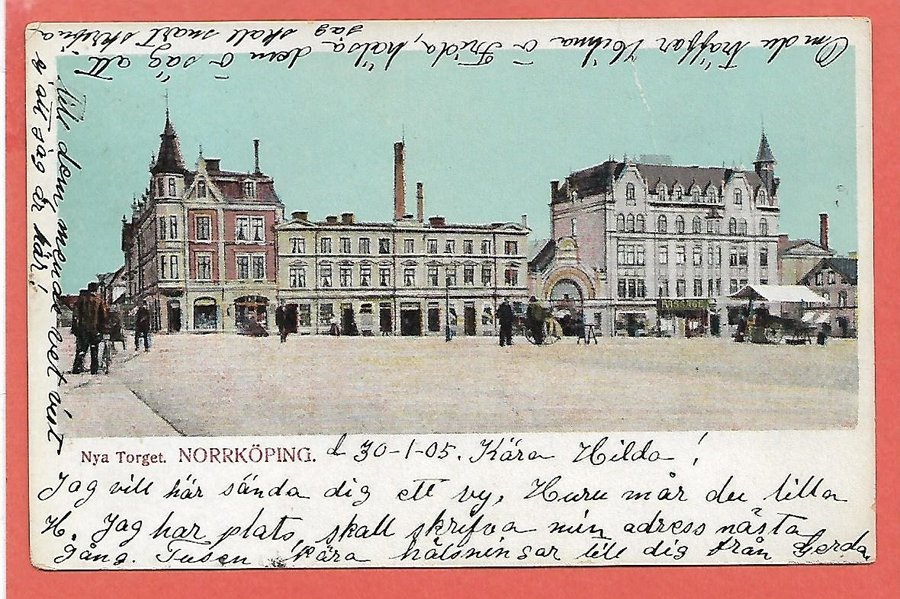 Nya Torget. NORRKÖPING. d 30-1-05. Kära Hilda!
Jag vill här sända dig ett vy, Huru mår du lilla
H. Jag har plats, skall skrifva min adress nästa
gång. Tusen kära hälsningar till dig från Gerda.
Om du träffar Hilma o Frida, hälsa dem o säg att
jag skall snart skrifva
till dem, men de vet visst
ej att jag är här!